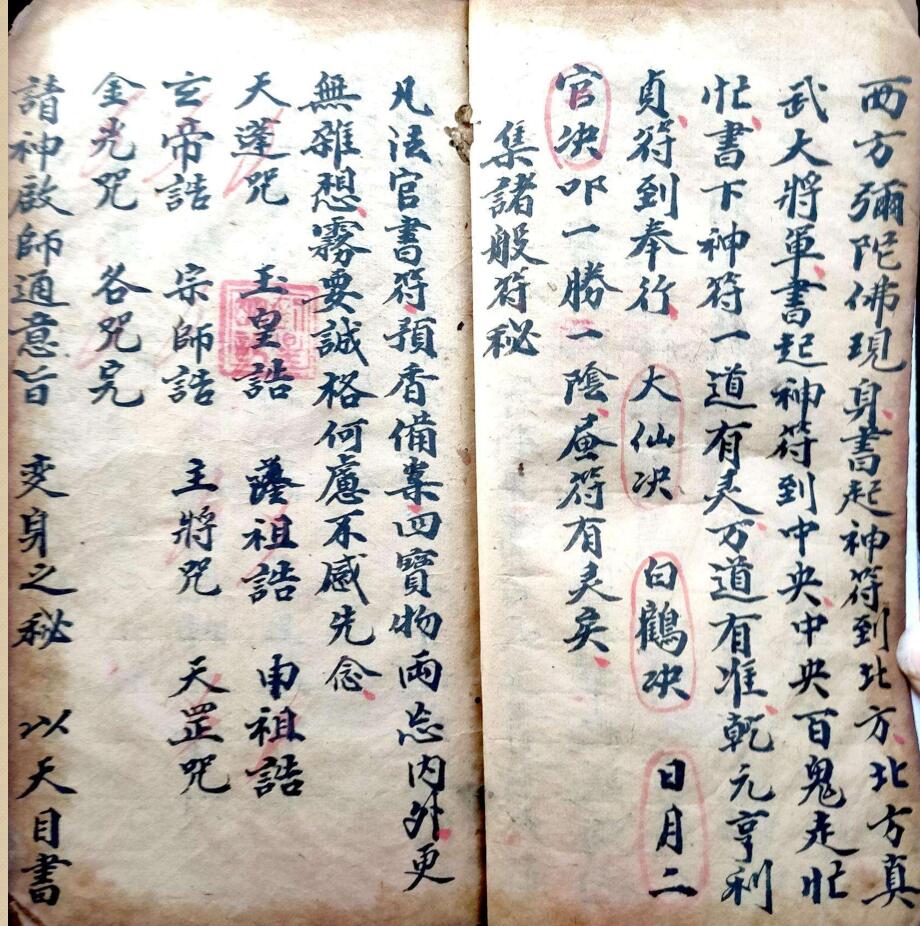 西方彌陀佛現身書起神符到北方北方真
武大將軍書起神符到中央中央百鬼走忙
忙書下神符一道有灵万道有准乾元亨利
貞符到奉行 大仙决 白鶴决 日月二
官决吖一勝一陰 符有灵矣
集諸般符秘
凡法官書符預香備案四寶物両忘内外更
無雜想霧要誠格何慮不感先念
天蓬咒 玉皇誥 薩祖誥 申祖誥
玄帝誥 宗師誥 主將咒 天罡咒
金光咒 各咒完
請神啟師通意旨 变身之秘 以天目書